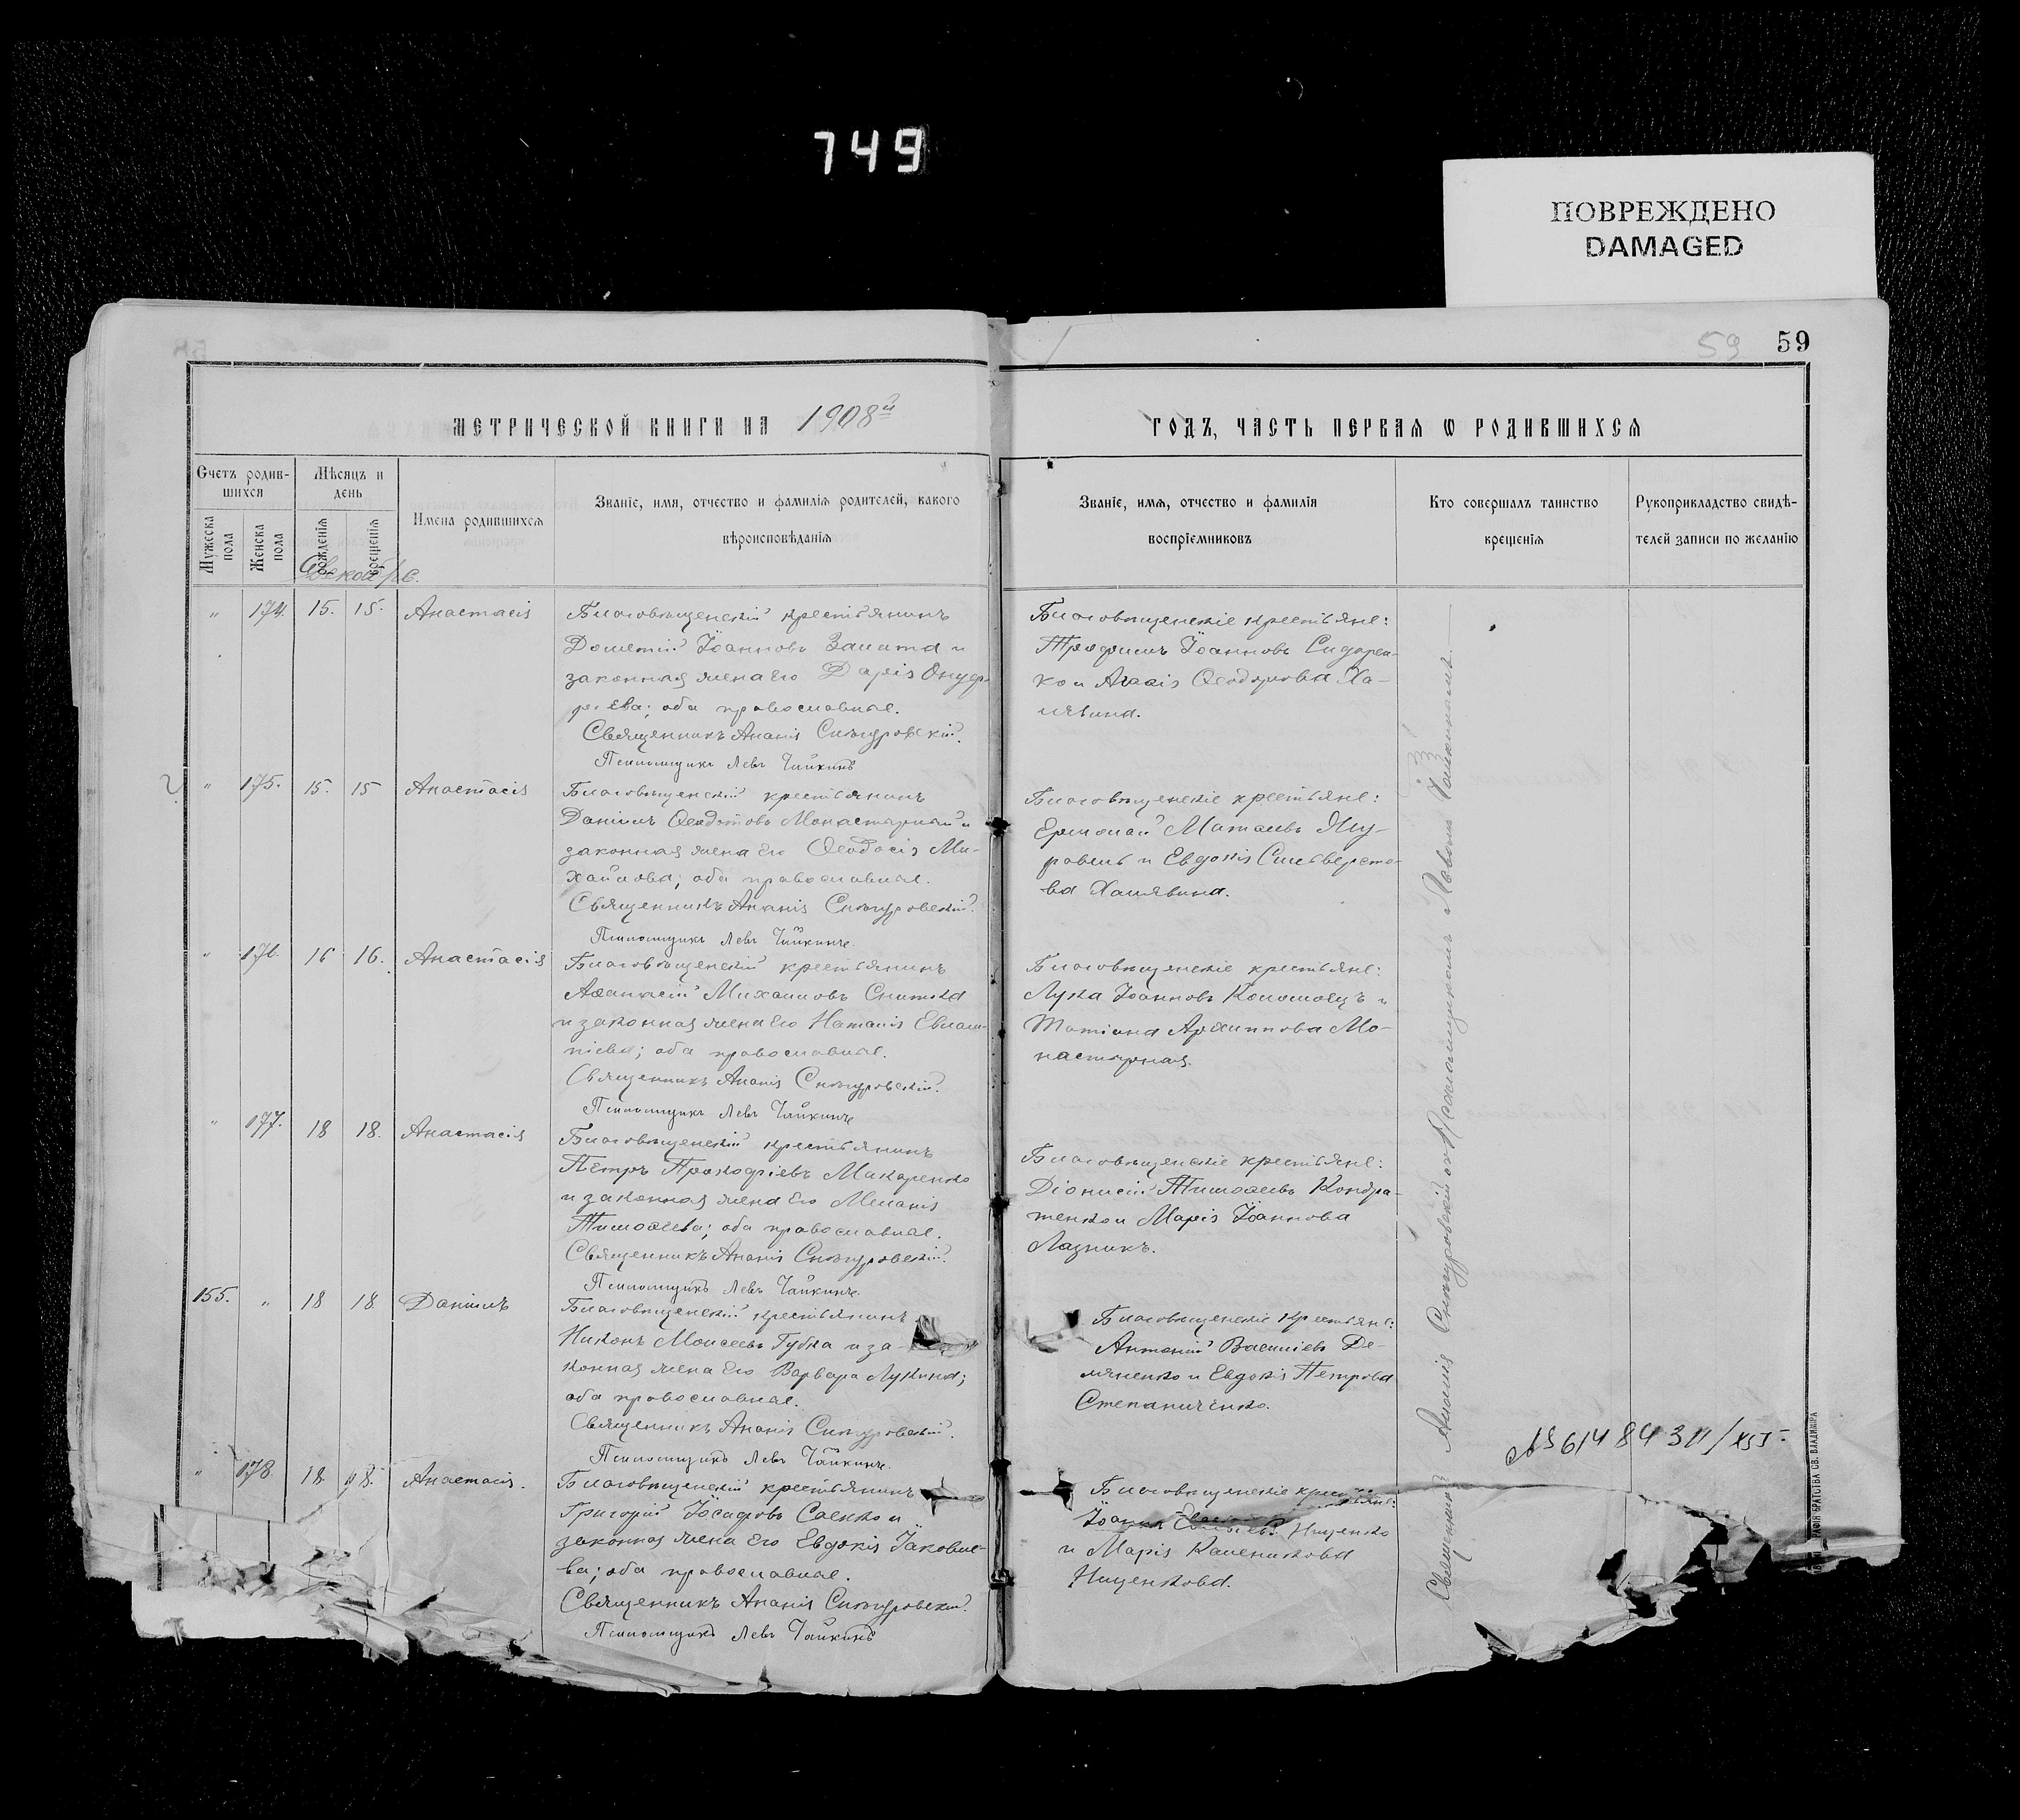 749
ПОВРЕЖДЕНО
DAMAGED
59
59
МЕТРИЧЕСКОЙ КНИГИ НА 1908й
ГОДЪ, ЧАСТЬ ПЕРВАЯ Ѡ РОДИВШИХСЯ
Счетъ родив-
шихся
Мѣсяцъ и
день
Мужеска
пола
Женска
пола
рожденія
крещенія
Имена родившихся
Званіе, имя, отчество и фамилія родителей, какого
вѣроисповѣданія
Званіе, имя, отчество и фамилія
воспріемниковъ
Кто совершалъ таинство
крещенія
Рукоприкладство свидѣ-
телей записи по желанію
" 174. 15. 15. Анастасія
Благовѣщенскій крестьянинъ
Дометій Іоанновъ и
законная жена его Дарія Онуф-
ріева; оба православные.
Священникъ Ананія Снѣгуровскій.
Псаломщикъ Левъ Чайкинъ
Благовѣщенскіе крестьяне:
Трофимъ Іоанновъ Сидорен-
ко и Агаѳія Ѳеодорова Ха-
лявина.
" 175. 15. 15 Анастасія
Благовѣщенскій крестьянинъ
Даніилъ Ѳеодотовъ Монастырный и
законная жена его Ѳеодосія Ми-
хайлова; оба православные.
Священникъ Ананія Снѣгуровскій.
Псаломщикъ Левъ Чайкинъ.
Благовѣщенскіе крестьяне:
Ермолай Матѳіевъ Жу-
равель и Евдокія Сильверсто-
ва Халявина.
" 176. 16 16. Анастасія
Благовѣщенскій крестьянинъ
Аѳанасій Михаиловъ Снитка
и законная жена его Наталія Евлам-
піева; оба православные.
Священникъ Ананія Снѣгуровскій.
Псаломщикъ Левъ Чайкинъ
Благовѣщенскіе крестьяне:
Лука Іоанновъ Коломоецъ и
Татіана Архиппова Мо-
настырная.
" 177. 18 18. Анастасія
Благовѣщенскій крестьянинъ
Петръ Прокофіевъ Макаренко
и законная жена его Меланія
Тимоѳеева; оба православные.
Священникъ Ананія Снѣгуровскій.
Псаломщикъ Левъ Чайкинъ.
Благовѣщенскіе крестьяне:
Діонисій Тимоѳеевъ Кондра-
тенко и Марія Іоаннова
Лазникъ.
155. " 18 18 Даніилъ
Благовѣщенскій крестьянинъ
Никонъ Моисеевъ Губка и за-
конная жена его Варвара Лукина;
оба православные.
Священникъ Ананія Снѣгуровскій.
Псаломщикъ Левъ Чайкинъ.
Благовѣщенскіе крестьяне:
Антоній Василіевъ Де-
мяненко и Евдокія Петрова
Степаниченко.
" 178 18. 18. Анастасія.
Благовѣщенскій крестьянинъ
Григорій Іосифовъ Саенко и
законная жена его Евдокія Іаковле-
ва; оба православные.
Священникъ Ананія Снѣгуровскій.
Псаломщикъ Левъ Чайкинъ
Благовѣщенскіе крестьяне:
Іоаннъ Нищенко
и Марія Каленикова
Нищенкова.
Священникъ Ананія Снѣгуровскій съ Псаломщикомъ Львомъ Чайкинымъ
БРАТСТВА СВ. ВЛАДИМІРА